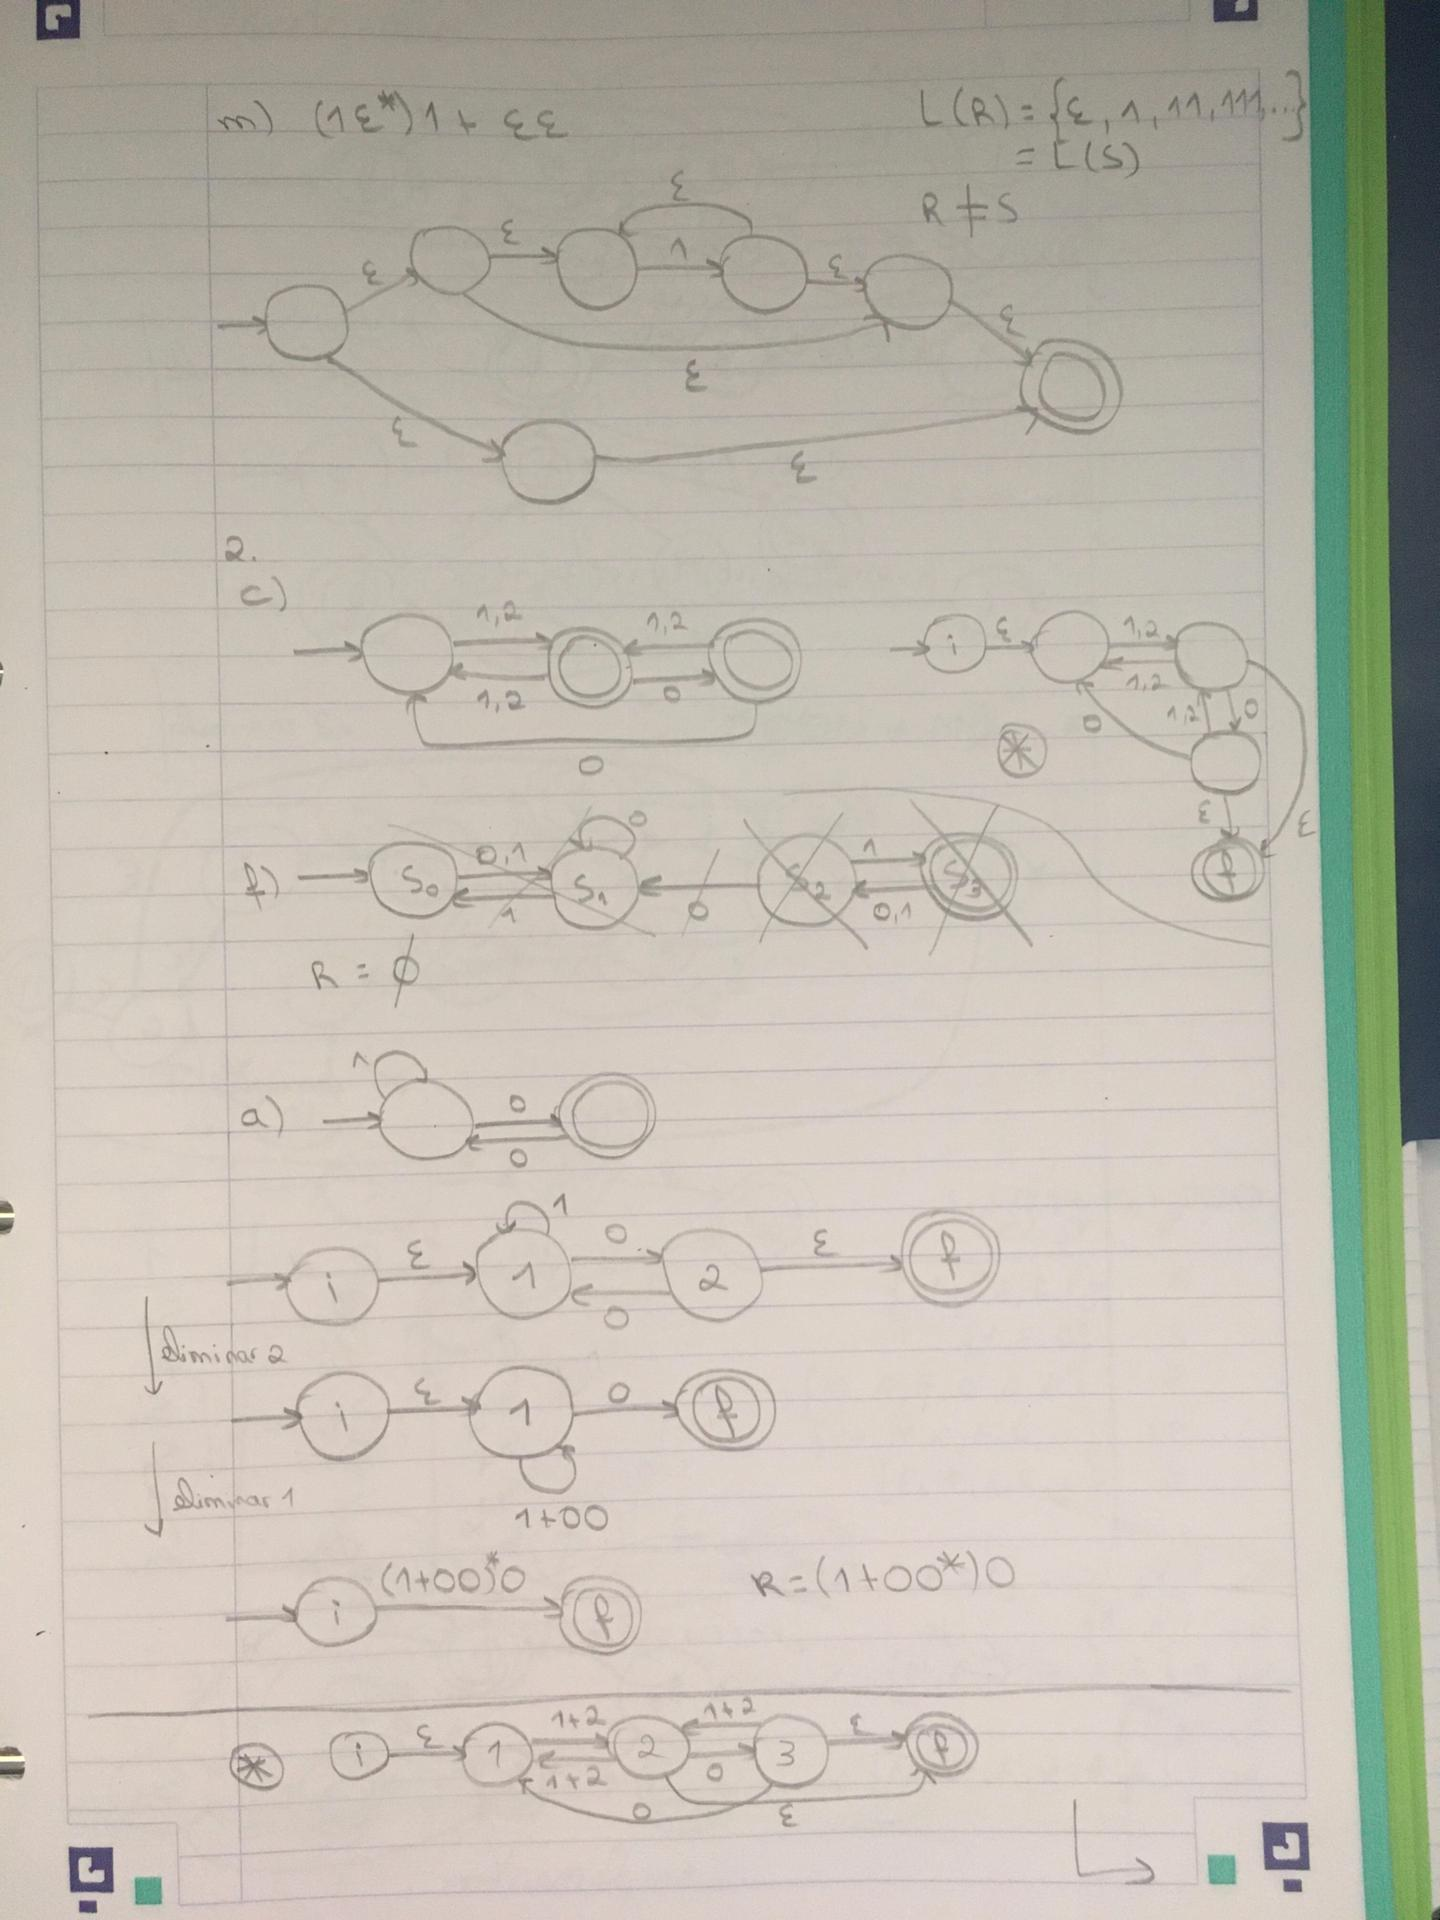 m) (1ε*)1 + εε
L(R) = {ε, 1, 11, 111, ...}
= L(S)
R ≠ S
ε
ε ε 1 ε
ε
ε
ε ε
2.
c)
1,2 1,2
1,2 0
0
i ε 1,2
1,2
0 1,2 0
*
ε ε
f
f) S0 0,1 S1 0 S2 1 S3
1 0 0,1
R = ∅
a) 1 0
0
i ε 1 1 0 2 ε f
0
eliminar 2
i ε 1 0 f
1+00
eliminar 1
i (1+00)*0 f
R = (1+00*)0
* i ε 1 1+2 2 1+2 3 ε f
1+2 0
0 ε